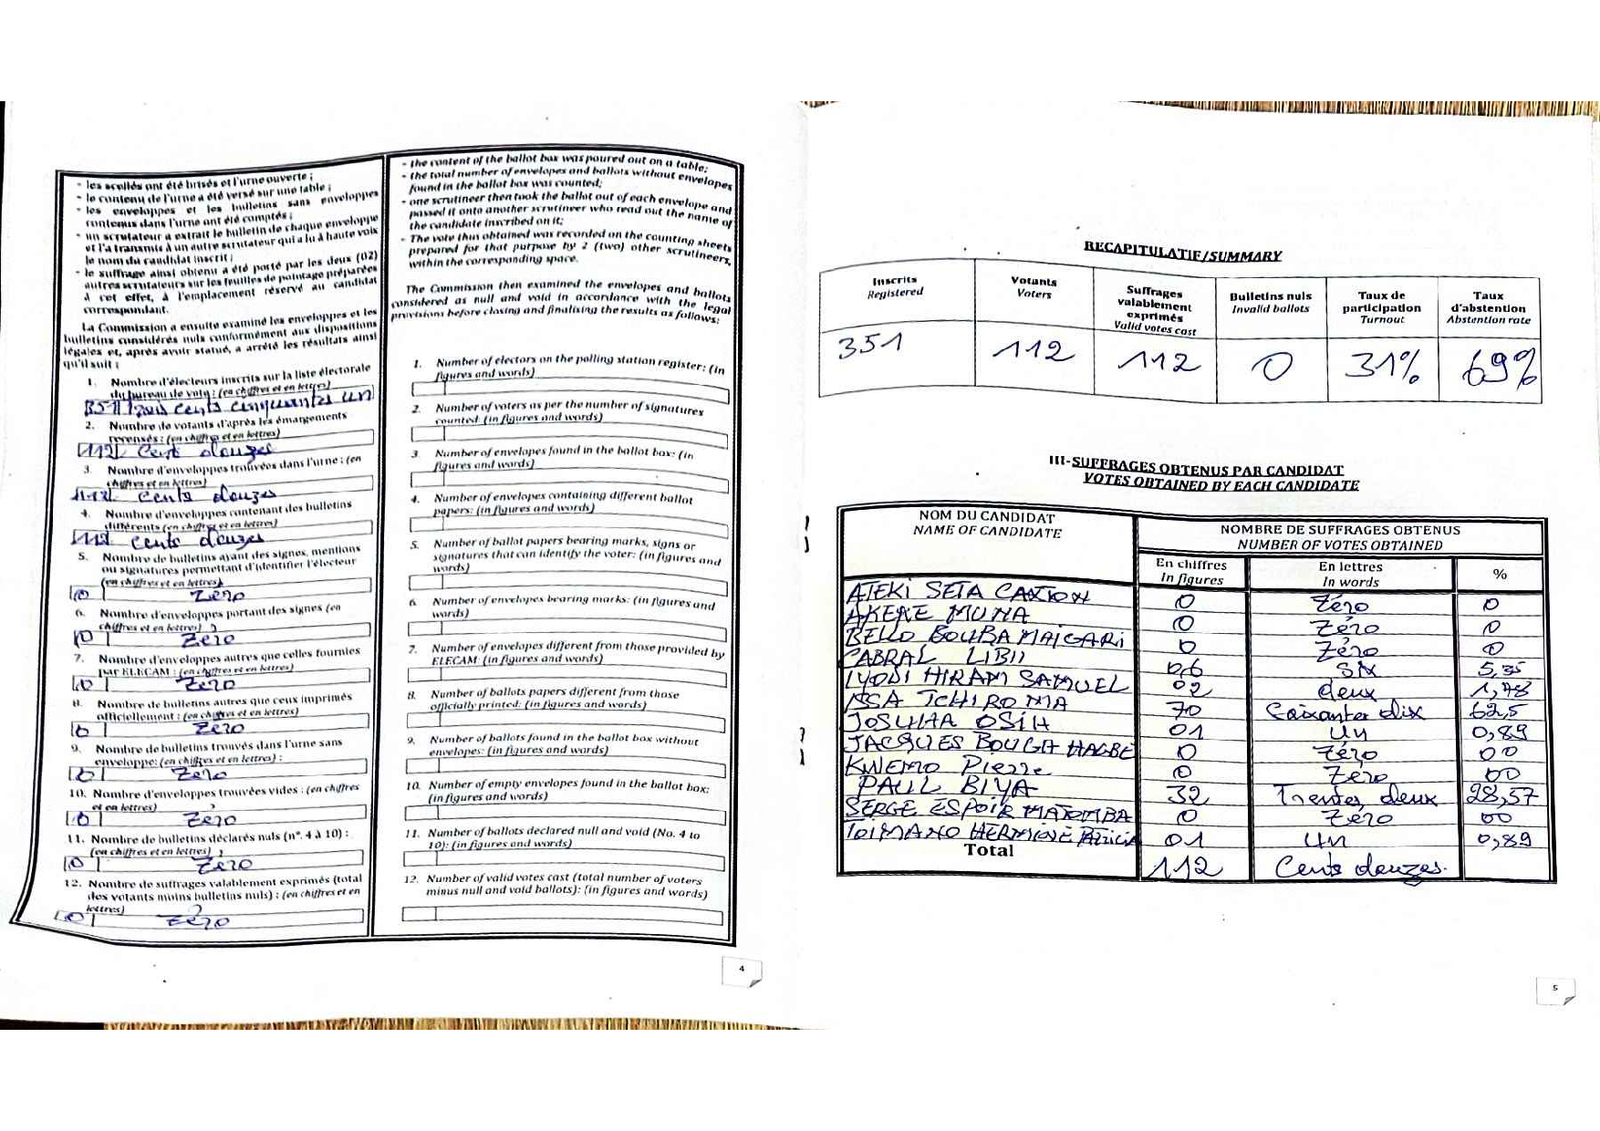 - les scellés ont été brisés et l'urne ouverte ;
- le contenu de l'urne a été versé sur une table ;
- les enveloppes et les bulletins sans enveloppes
contenus dans l'urne ont été comptés ;
- un scrutateur a extrait le bulletin de chaque enveloppe
et l'a transmis à un autre scrutateur qui a lu à haute voix
le nom du candidat inscrit ;
- le suffrage ainsi obtenu a été porté par les deux (02)
autres scrutateurs sur les feuilles de pointage préparées
à cet effet, à l'emplacement réservé au candidat
correspondant.
La Commission a ensuite examiné les enveloppes et les
bulletins considérés nuls conformément aux dispositions
légales et, après avoir statué, a arrêté les résultats ainsi
qu'il suit :
1. Nombre d'électeurs inscrits sur la liste électorale
du bureau de vote : (en chiffres et en lettres)
351 Trois cents cinquantes un
2. Nombre de votants d'après les émargements
recensés : (en chiffres et en lettres)
112 Cent douzes
3. Nombre d'enveloppes trouvées dans l'urne : (en
chiffres et en lettres)
112 Cents douzes
4. Nombre d'enveloppes contenant des bulletins
différents (en chiffres et en lettres)
112 Cents douzes
5. Nombre de bulletins ayant des signes, mentions
ou signatures permettant d'identifier l'électeur
(en chiffres et en lettres)
0 Zéro
6. Nombre d'enveloppes portant des signes (en
chiffres et en lettres)
0 Zéro
7. Nombre d'enveloppes autres que celles fournies
par ELECAM : (en chiffres et en lettres)
0 Zéro
8. Nombre de bulletins autres que ceux imprimés
officiellement : (en chiffres et en lettres)
0 Zéro
9. Nombre de bulletins trouvés dans l'urne sans
enveloppe: (en chiffres et en lettres) :
0 Zéro
10. Nombre d'enveloppes trouvées vides : (en chiffres
et en lettres)
0 Zéro
11. Nombre de bulletins déclarés nuls (n°. 4 à 10) :
(en chiffres et en lettres)
0 Zéro
12. Nombre de suffrages valablement exprimés (total
des votants moins bulletins nuls) : (en chiffres et en
lettres)
0 Zéro
- the content of the ballot box was poured out on a table;
- the total number of envelopes and ballots without envelopes
found in the ballot box was counted;
- one scrutineer then took the ballot out of each envelope and
passed it onto another scrutineer who read out the name of
the candidate inscribed on it;
- The vote thus obtained was recorded on the counting sheets
prepared for that purpose by 2 (two) other scrutineers,
within the corresponding space.
The Commission then examined the envelopes and ballots
considered as null and void in accordance with the legal
provisions before closing and finalising the results as follows:
1. Number of electors on the polling station register: (in
figures and words)
2. Number of voters as per the number of signatures
counted: (in figures and words)
3 Number of envelopes found in the ballot box: (in
figures and words)
4. Number of envelopes containing different ballot
papers: (in figures and words)
5. Number of ballot papers bearing marks, signs or
signatures that can identify the voter: (in figures and
words)
6. Number of envelopes bearing marks: (in figures and
words)
7. Number of envelopes different from those provided by
ELECAM: (in figures and words)
8. Number of ballots papers different from those
officially printed: (in figures and words)
9. Number of ballots found in the ballot box without
envelopes: (in figures and words)
10. Number of empty envelopes found in the ballot box:
(in figures and words)
11. Number of ballots declared null and void (No. 4 to
10): (in figures and words)
12. Number of valid votes cast (total number of voters
minus null and void ballots): (in figures and words)
4
RECAPITULATIF/SUMMARY
Inscrits Registered | Votants Voters | Suffrages valablement exprimés Valid votes cast | Bulletins nuls Invalid ballots | Taux de participation Turnout | Taux d'abstention Abstention rate
351 112 112 0 31% 69%
III-SUFFRAGES OBTENUS PAR CANDIDAT
VOTES OBTAINED BY EACH CANDIDATE
NOM DU CANDIDAT NOMBRE DE SUFFRAGES OBTENUS
NAME OF CANDIDATE NUMBER OF VOTES OBTAINED
En chiffres En lettres %
In figures In words
ATEKI SETA CAXTON 0 Zéro 0
AKERE MUNA 0 Zéro 0
BELLO BOUBA MAIGARI 0 Zéro 0
CABRAL LIBII 06 Six 5,35
IYODI HIRAM SAMUEL 02 deux 1,78
ISSA TCHIROMA 70 Soixantes dix 62,5
JOSUHA OSIH 01 Un 0,89
JACQUES BOUGH HAGBE 0 Zéro 00
KWEMO Pierre 0 Zéro 00
PAUL BIYA 32 Trentes deux 28,57
SERGE ESPOIR MATOMBA 0 Zéro 00
TOIMANO HERMINE 01 Un 0,89
Total 112 Cents douzes.
5